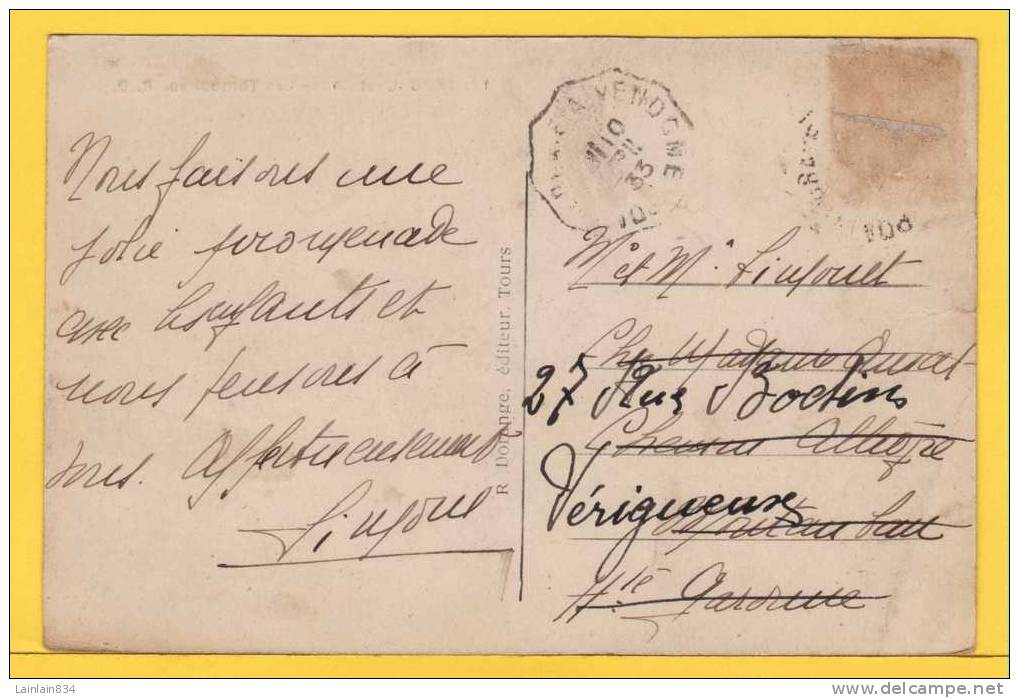 Nous faisons une
jolie promenade
avec les enfants et
nous pensons à
vous. Affectueusement
R Dorange, éditeur. Tours
A VENDOME
10
33
Mr et Me
Chez Madame
27 Rue Bodin
Chemin
Périgueux
Montauban
Hte Garonne
Lainlain834
delcampe.net